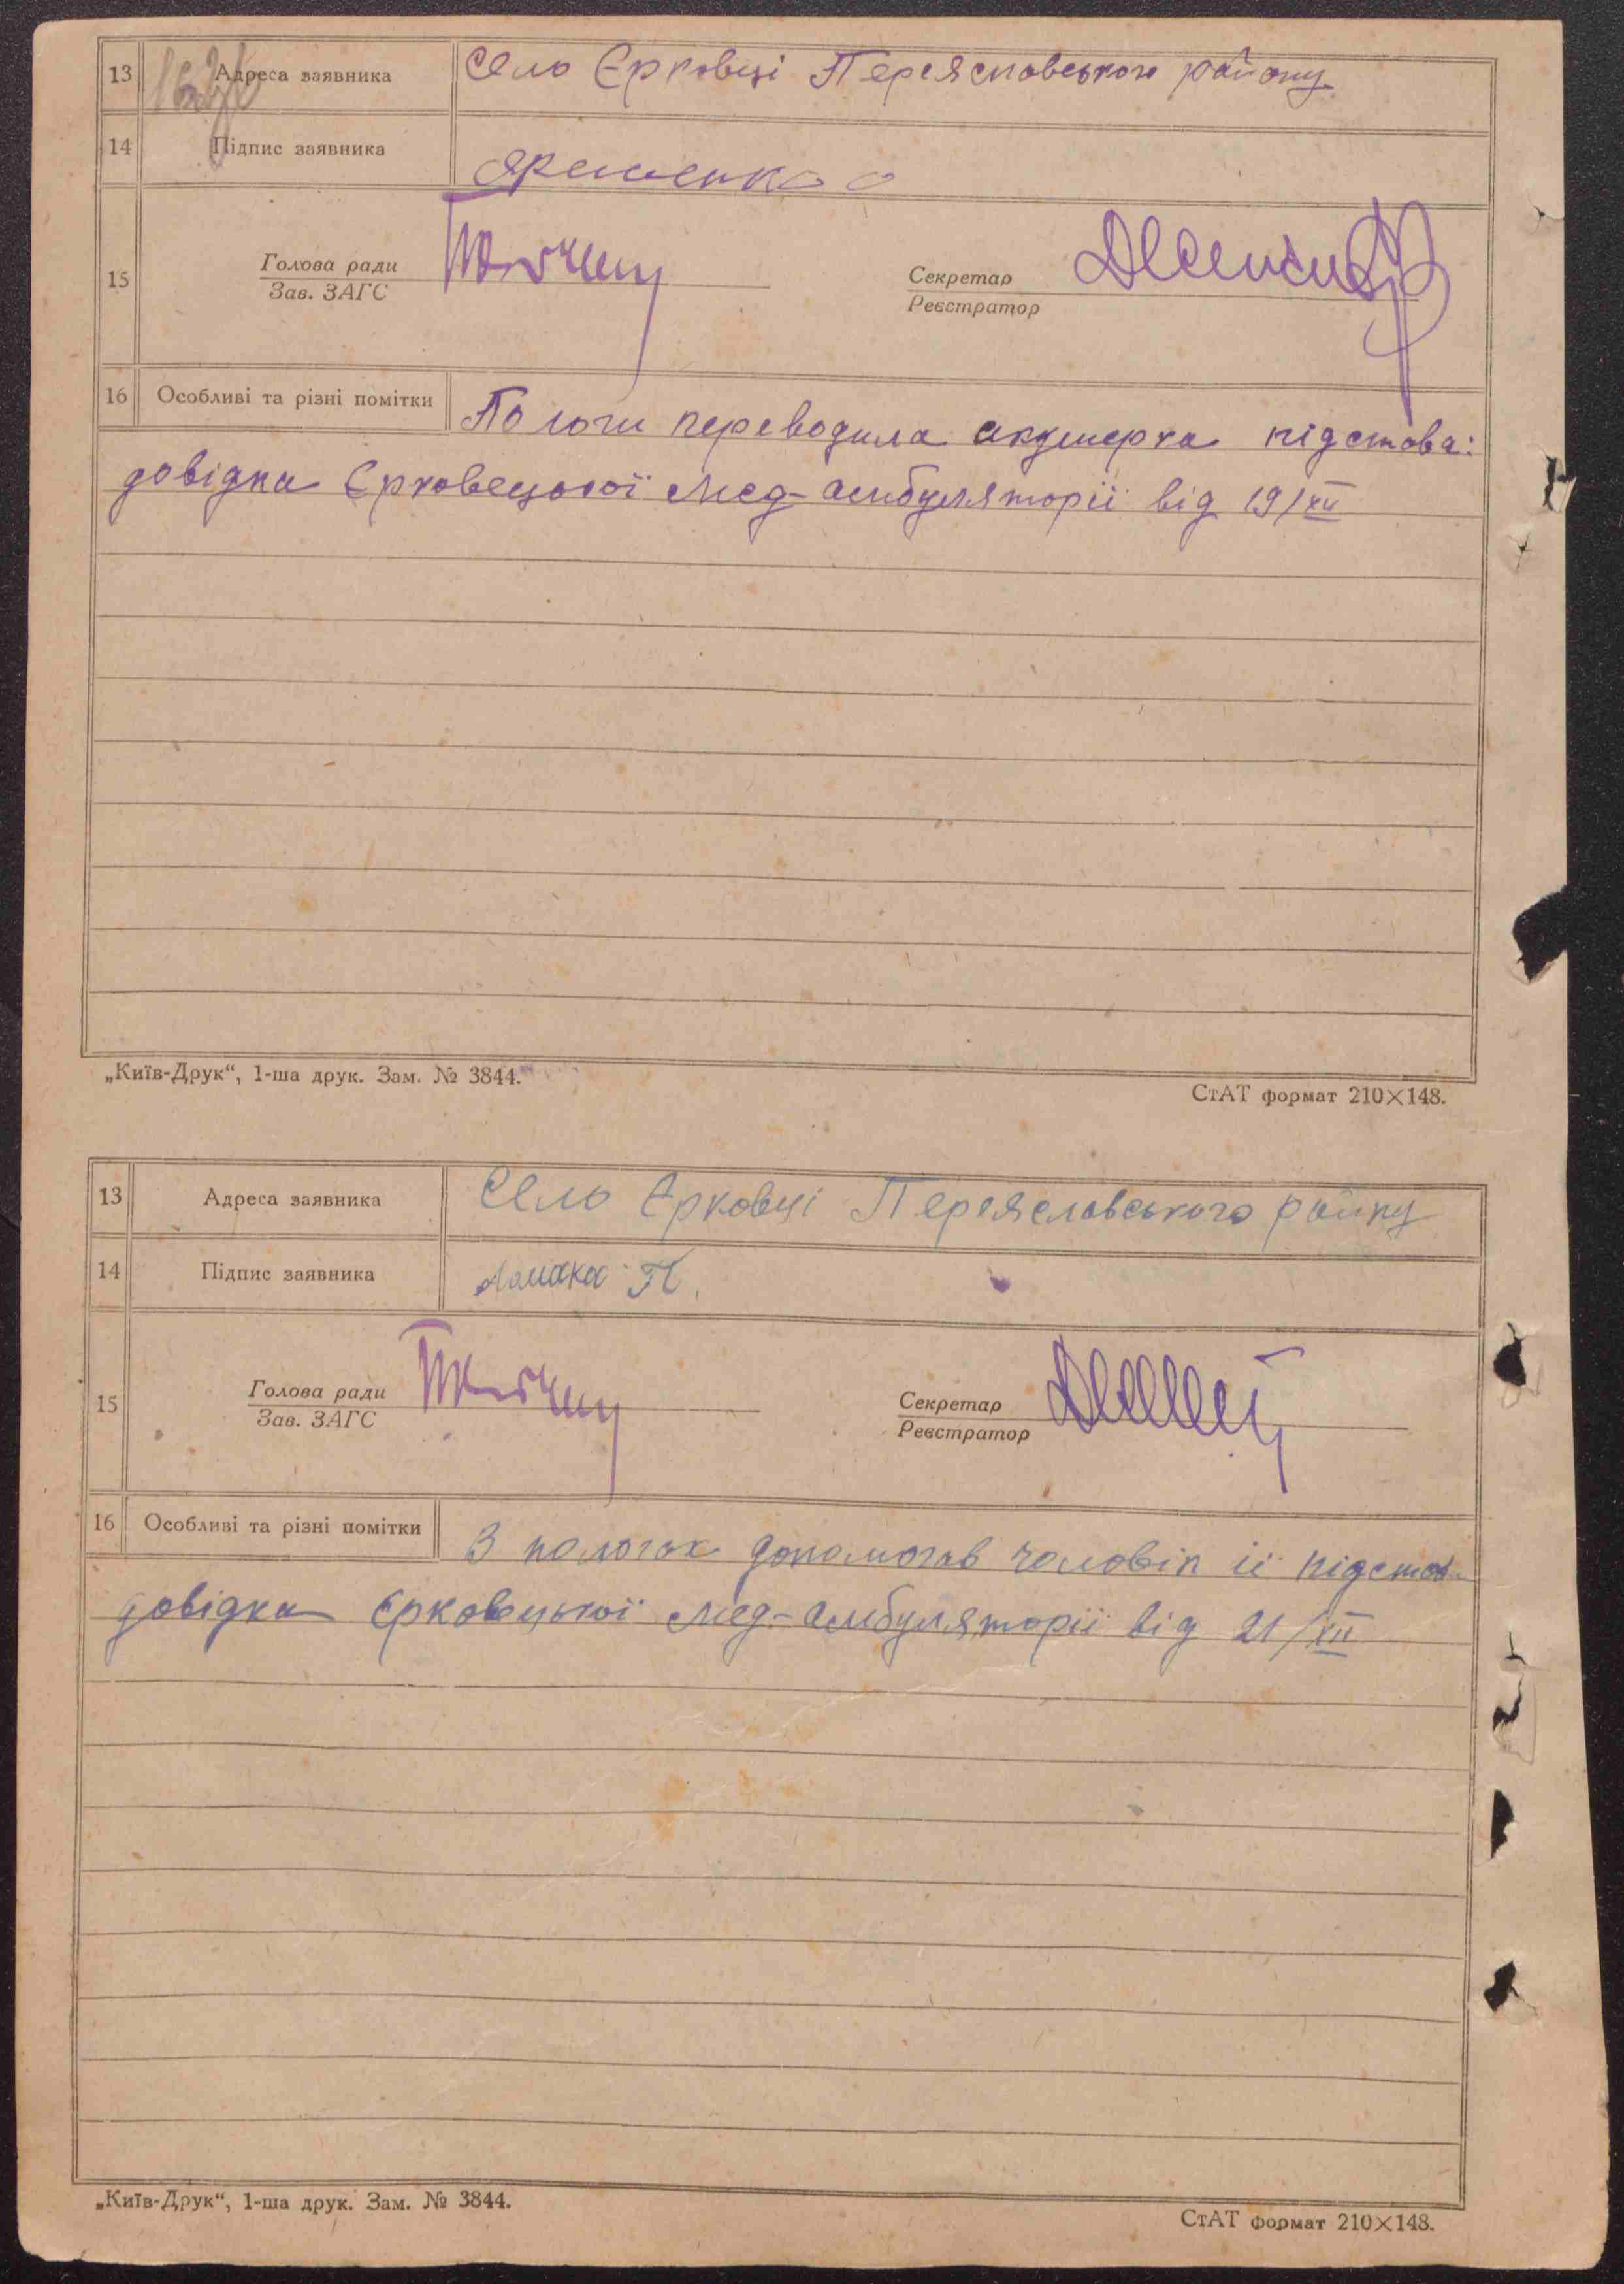 13 Адреса заявника Село Єрковці Переяславського району
14 Підпис заявника Яременко
15 Голова ради
Зав. ЗАГС
Секретар
Реєстратор
16 Особливі та різні помітки Пологи переводила акушерка підстова:
довідка Єрковецької Мед-амбуляторії від 19/XII
„Київ-Друк“, 1-ша друк. Зам. № 3844.
СтАТ формат 210×148.
13 Адреса заявника Село Єрковці Переяславського району
14 Підпис заявника Ломака П.
15 Голова ради
Зав. ЗАГС
Секретар
Реєстратор
16 Особливі та різні помітки В пологах допомогав чоловік її підстов
довідка Єрковецької Мед-амбуляторії від 21/XII
„Київ-Друк“, 1-ша друк. Зам. № 3844.
СтАТ формат 210×148.